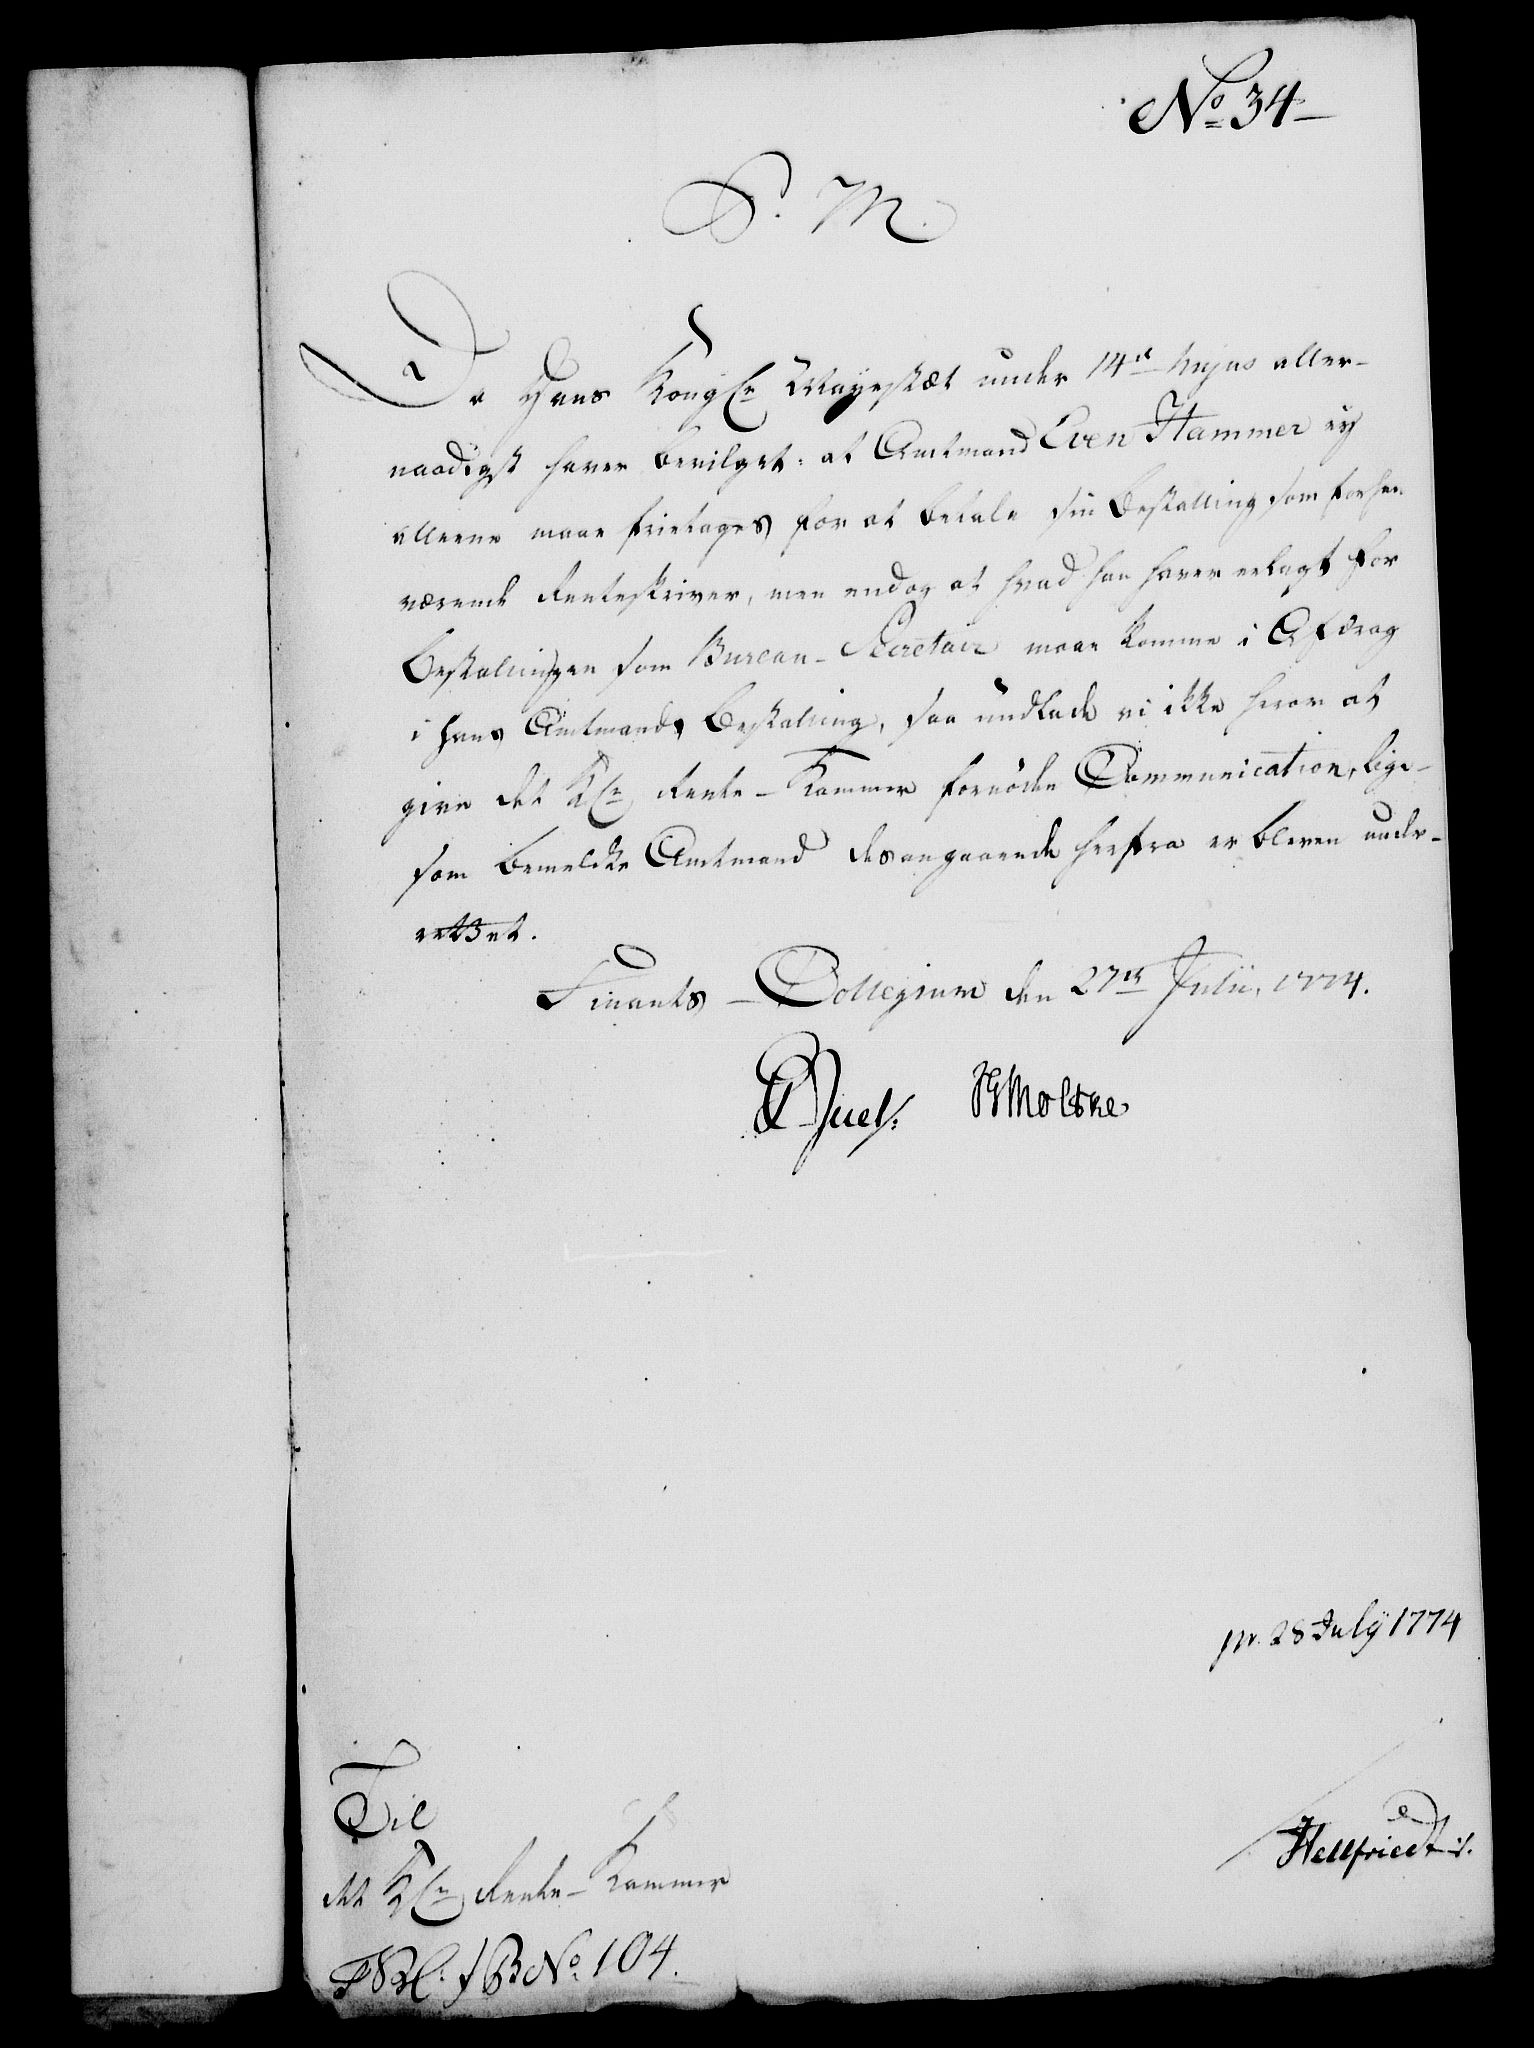 No 34
P. M.
Da Hans Kongl. Mayestæt under 14de hujus aller-
naadigst haver bevilget: at Amtmand Even Hammer ey
alleene maae frietages for at betale sin Bestalling som forhen
værende Renteskriver, men endog at hvad han haver erlagt for
Bestallingen som Bureau-Secretair maae komme i Afdrag
i hans Amtmands Bestalling, saa undlade vi ikke herom at
give det Kgl. Rente-Kammer fornöden Communication, lige-
som bemeldte Amtmand desangaaende herfra er bleven under-
rettet.
Finants-Collegium den 27de Julii, 1774.
Juel. HMoltke
pr. 28 July 1774
Til
det Kgl. Rente-Kammer
Hellfriedt
No. 104.